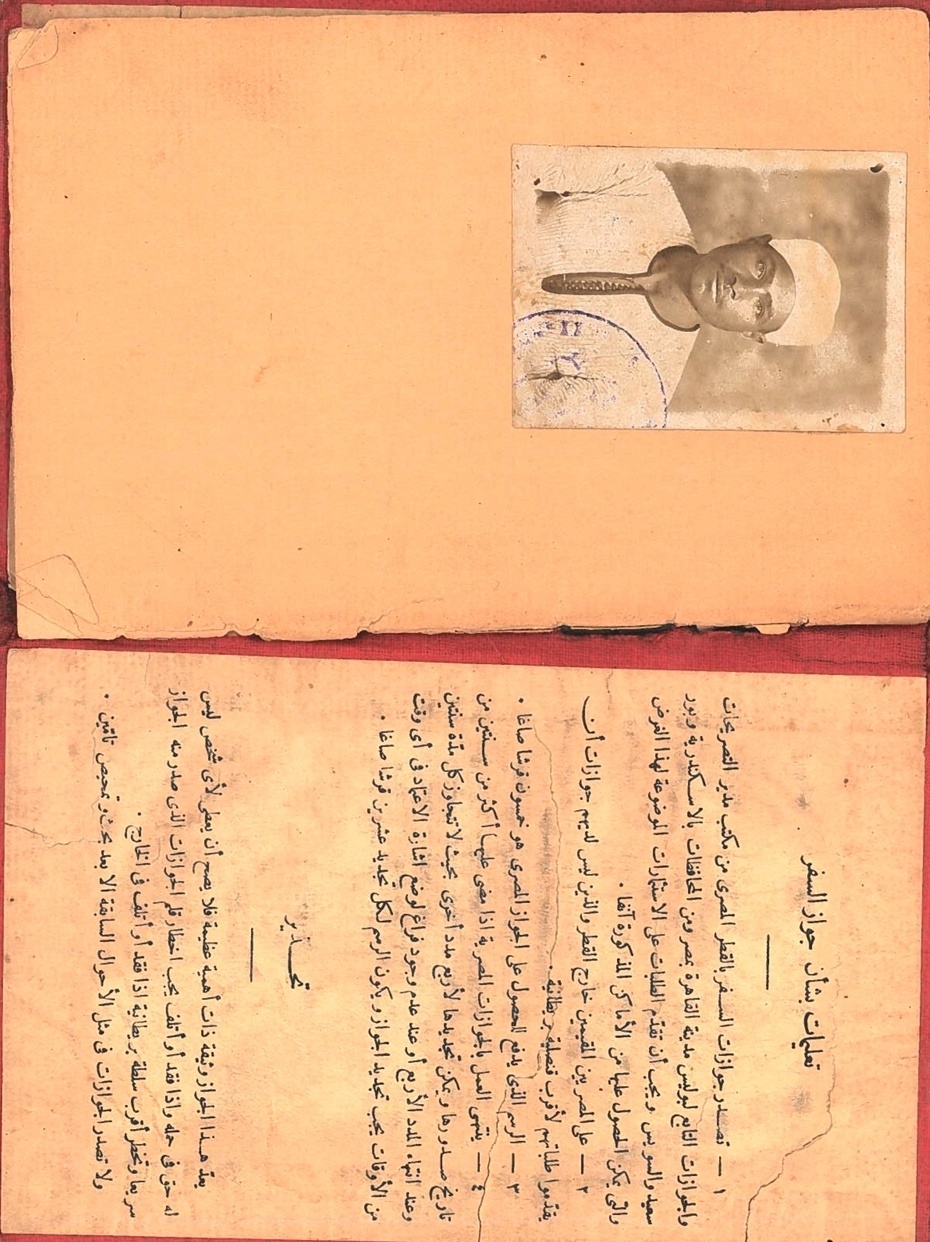 تعليمات بشأن جواز السفر
١ — تصدر جوازات السفر بالقطر المصرى من مكتب مدير التصريحات
والجوازات التابع لبوليس مدينة القاهرة بمصر ومن المحافظات بالاسكندرية وبور
سعيد والسويس ويجب أن تقدّم الطلبات على الاستمارات الموضوعة لهذا الغرض
والتى يمكن الحصول عليها من الأماكن المذكورة آنفا .
٢ — على المصريين المقيمين خارج القطر والذين ليس لديهم جوازات أن
يقدّموا طلباتهم لأقرب قنصلية بريطانية .
٣ — الرسم الذى يدفع للحصول على الجواز المصرى هو خمسون قرشا صاغا .
٤ — ينتهى العمل بالجوازات المصرية اذا مضى عليها أكثر من سنتين من
تاريخ صدورها ويمكن تجديدها لأربع مدد أخرى بحيث لا تتجاوز كل مدّة سنتين
وعند انتهاء المدد الأربع أو عند عدم وجود فراغ لوضع اشارة الاعتماد فى أى وقت
من الأوقات يجب تجديد الجواز ويكون الرسم لكل تجديد عشرين قرشا صاغا .
تحــذير
يعدّ هـذا الجواز وثيقة ذات أهمية عظيمة فلا يصح أن يعطى لأى شخص ليس
له حق فى حمله واذا فقد أو أتلف يجب اخطار قلم الجوازات الذى صدر منه الجواز
سريعا وتخطر أقرب سلطة بريطانية اذا فقد أو أتلف فى الخارج .
ولا تصدر الجوازات فى مثل الأحوال السابقة الا بعد بحث وتمحيص تامّين .